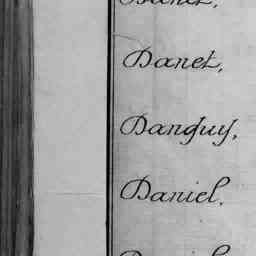 Danet,
Danguy,
Daniel,